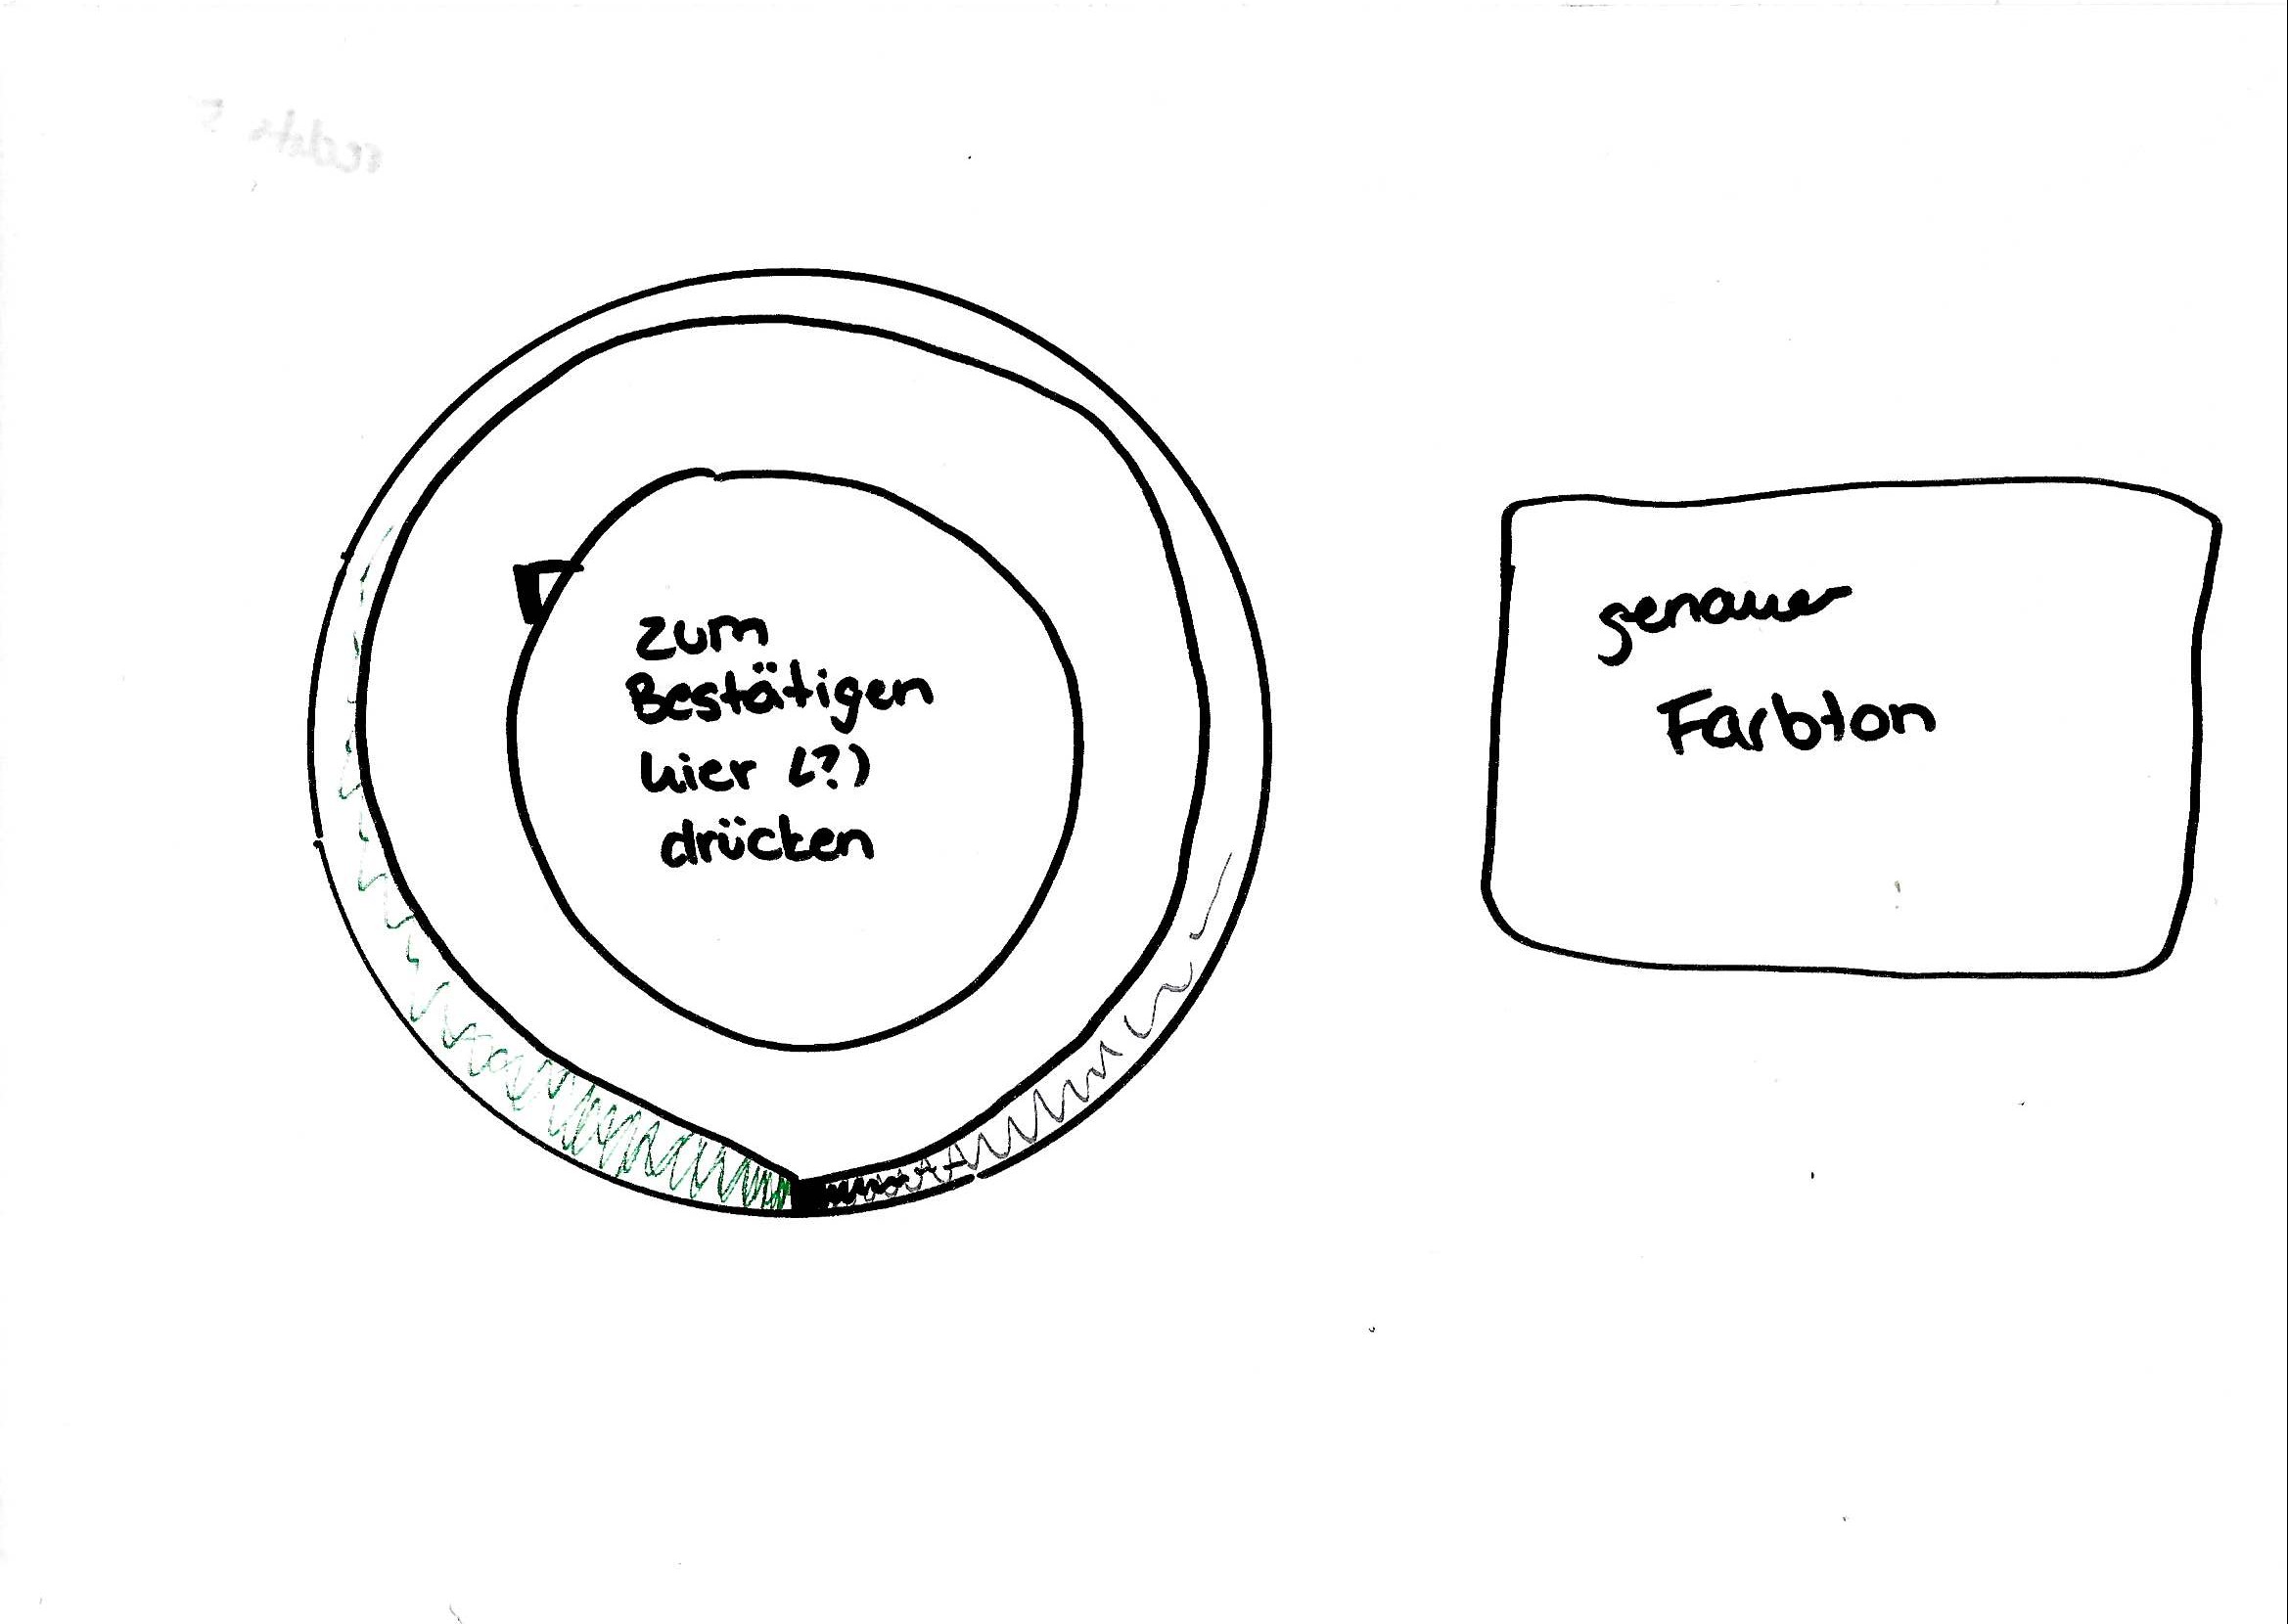 zum
Bestätigen
hier (?)
drücken
genauer
Farbton